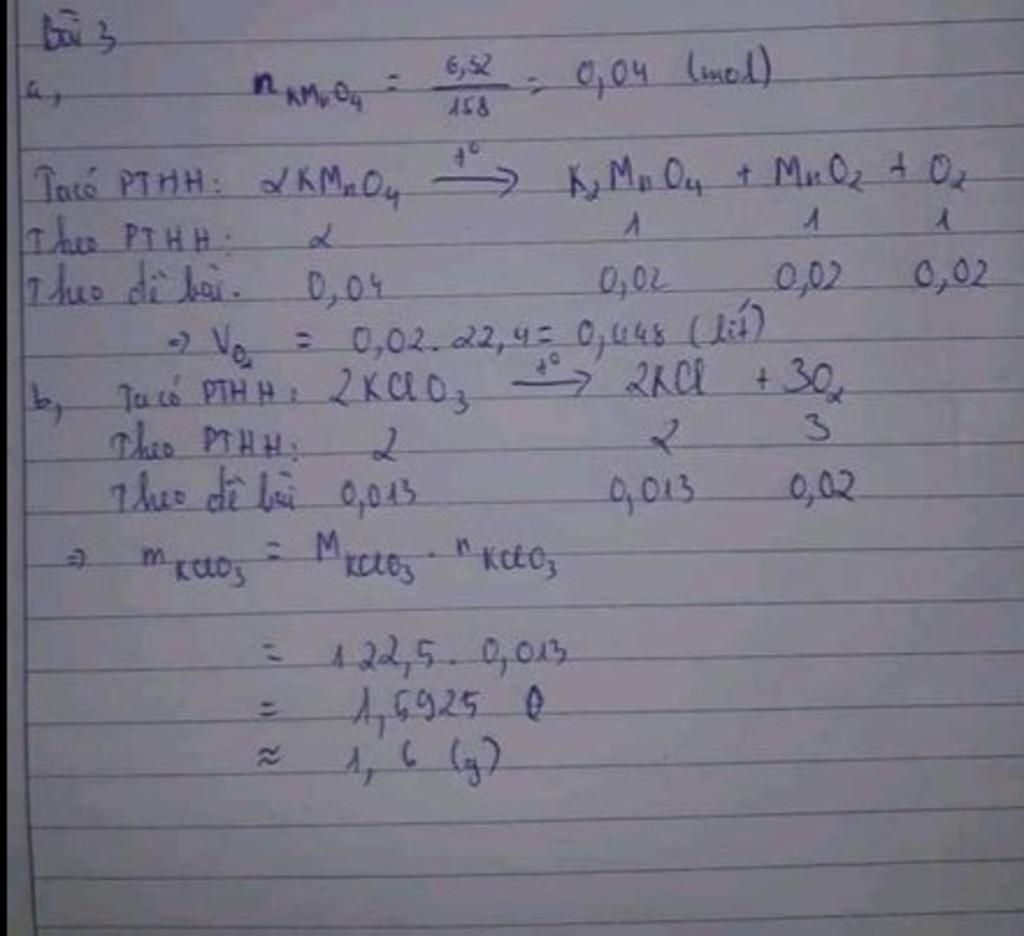 bài 3
a, n KMnO₄ = 6,32/158 = 0,04 (mol)
Ta có PTHH: 2KMnO₄ t°→ K₂MnO₄ + MnO₂ + O₂
Theo PTHH: 2 1 1 1
Theo đề bài. 0,04 0,02 0,02 0,02
=> V O₂ = 0,02. 22,4 = 0,448 (lít)
b, Ta có PTHH: 2KClO₃ t°→ 2KCl + 3O₂
Theo PTHH: 2 2 3
Theo đề bài 0,013 0,013 0,02
=> m KClO₃ = M KClO₃ . n KClO₃
= 122,5. 0,013
= 1,5925
≈ 1,6 (g)